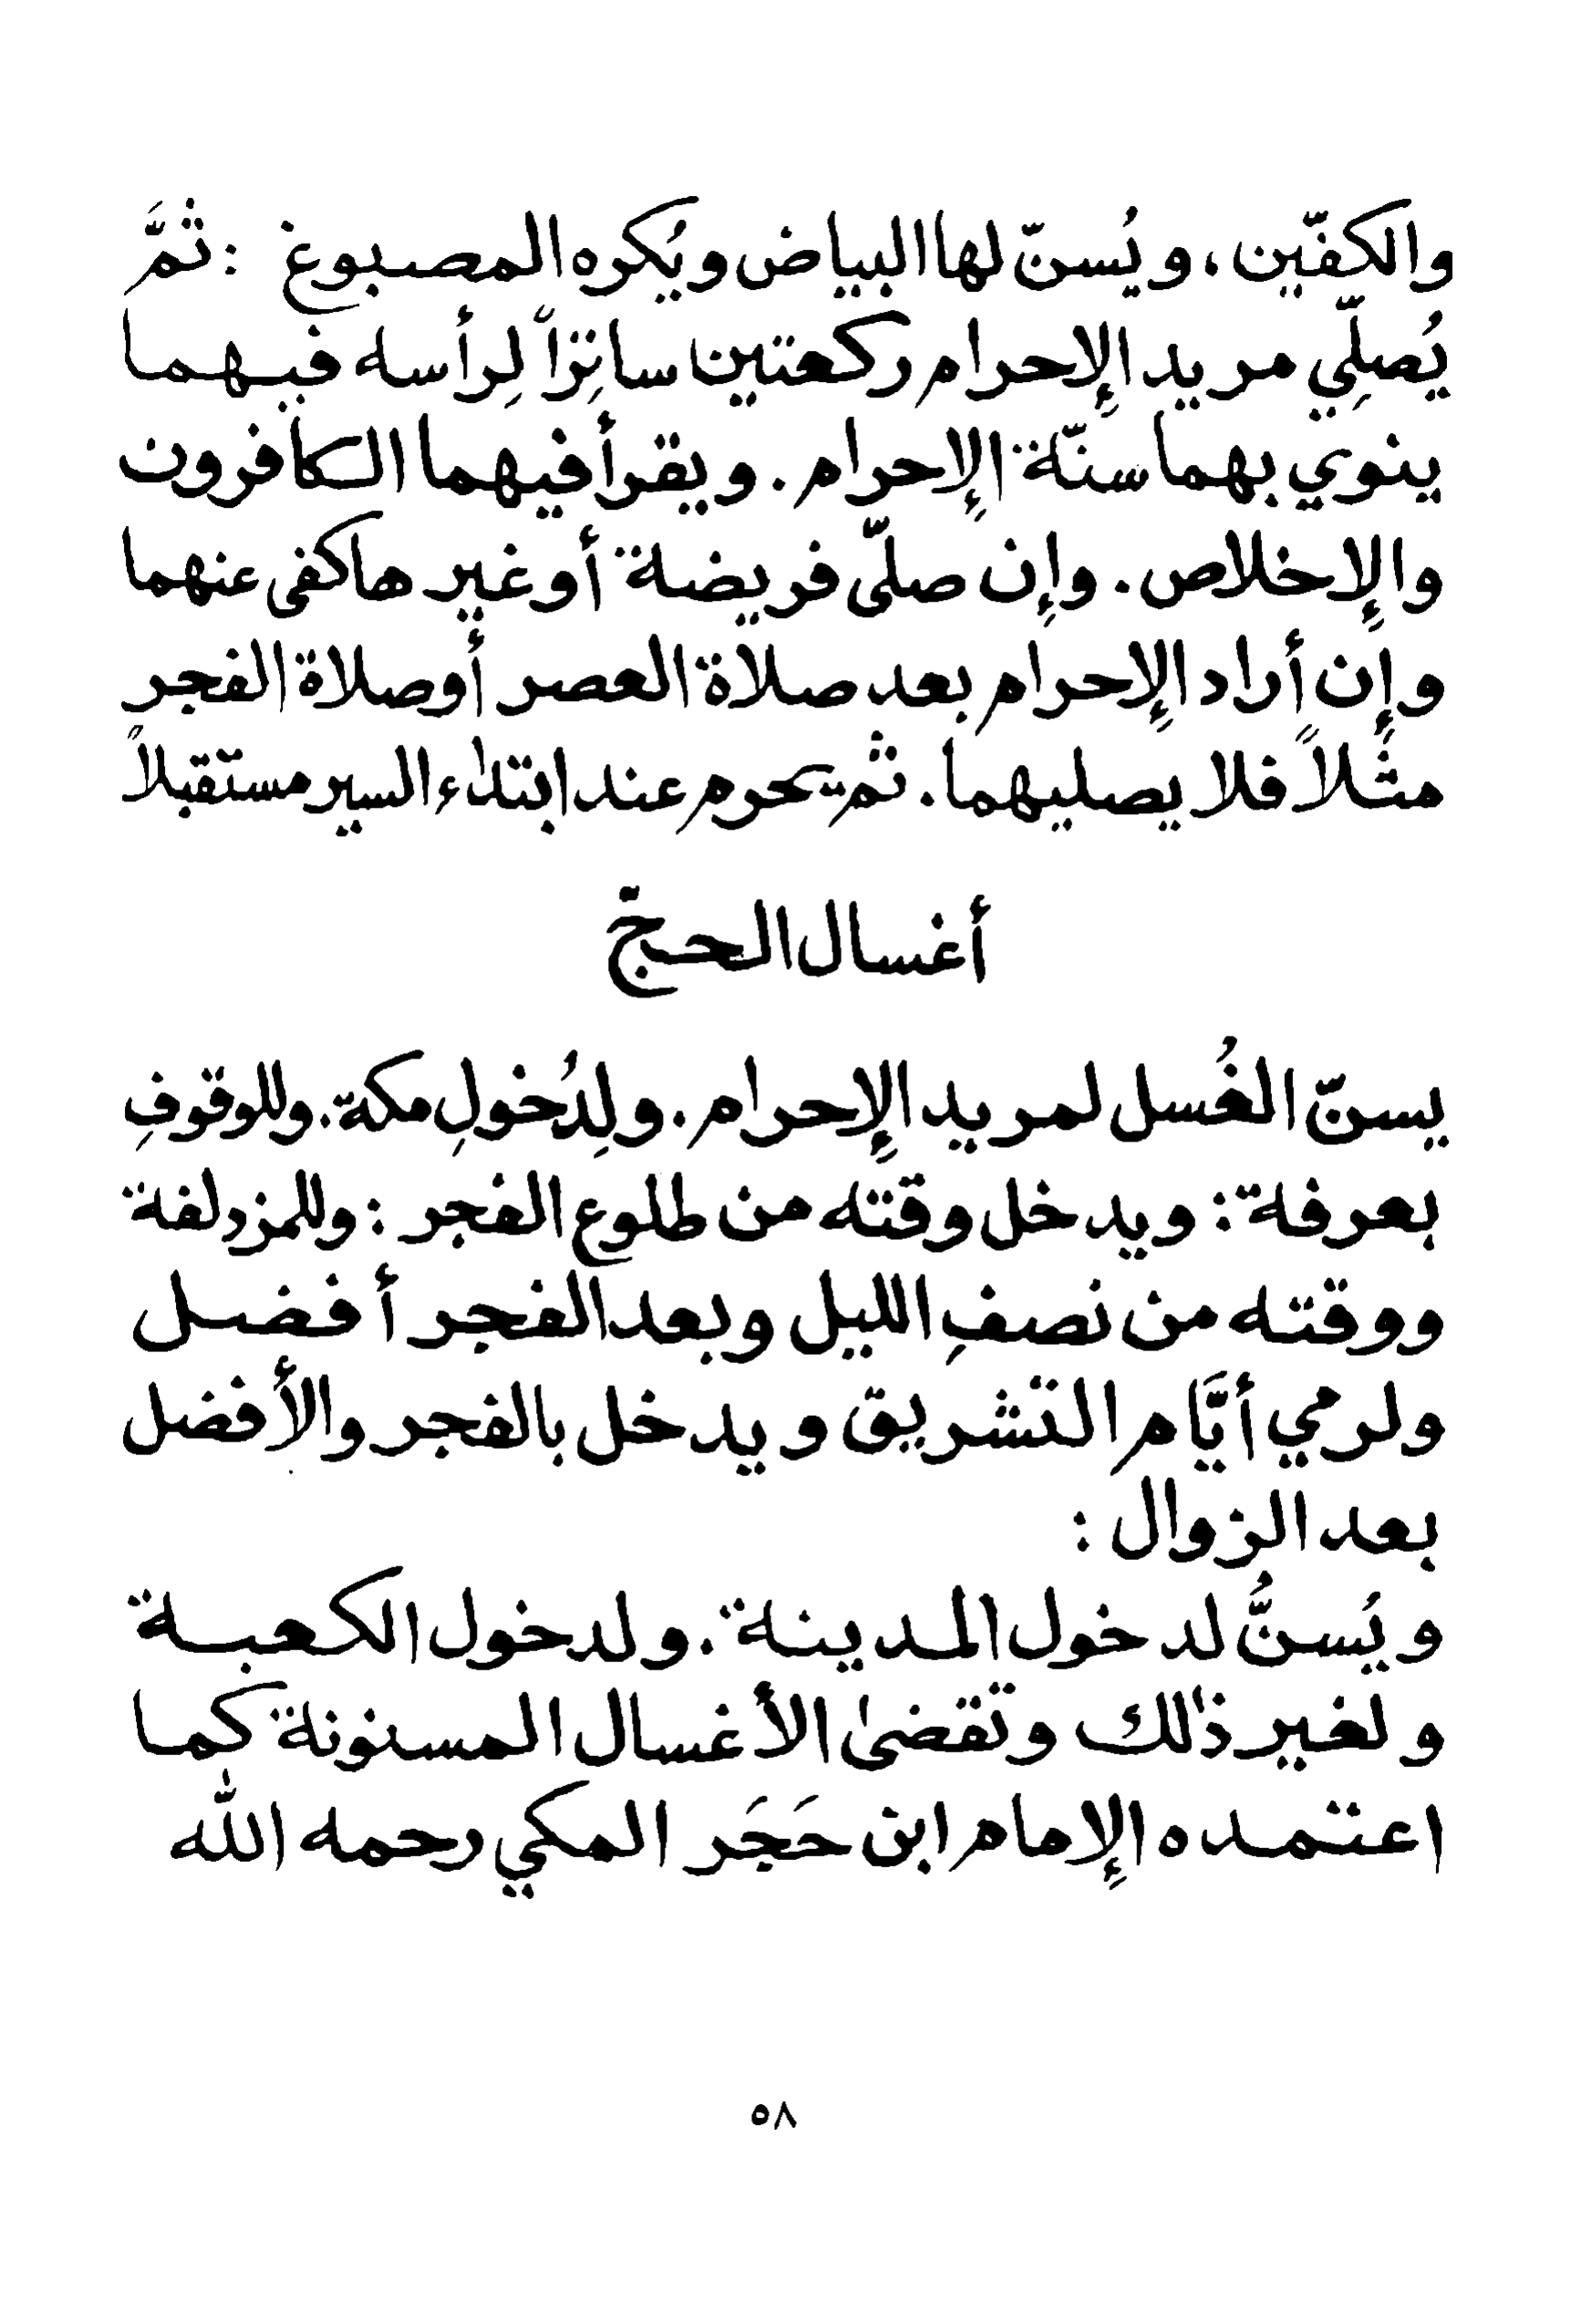 والكفّين، ويُسنّ لها البياض ويُكره المصبوغ : ثمَّ
يُصلِّي مريد الإحرام ركعتين ساتِرًا لِرأسه فيهما
ينوي بهما سنّة الإحرام. ويقرأ فيهما الكافرون
والإخلاص. وإن صلّى فريضة أو غيرها كفى عنهما
وإن أراد الإحرام بعد صلاة العصر أو صلاة الفجر
مثلاً فلا يصليهما. ثم يحرم عند ابتداء السير مستقبلاً
أغسال الحجّ
يسنّ الغُسل لمريد الإحرام. ولِدُخولِ مكة. وللوقوفِ
بعرفة : ويدخل وقته من طلوع الفجر : وللمزدلفة
ووقته من نصفِ الليل وبعد الفجر أفضل
ولرمي أيَّام التشريق ويدخل بالفجر والأفضل
بعد الزوال :
ويُسنُّ لدخول المدينة. ولدخول الكعبة
ولغير ذٰلك وتقضىٰ الأغسال المسنونة كما
اعتمده الإمام ابن حَجَر المكي رحمه الله
٥٨